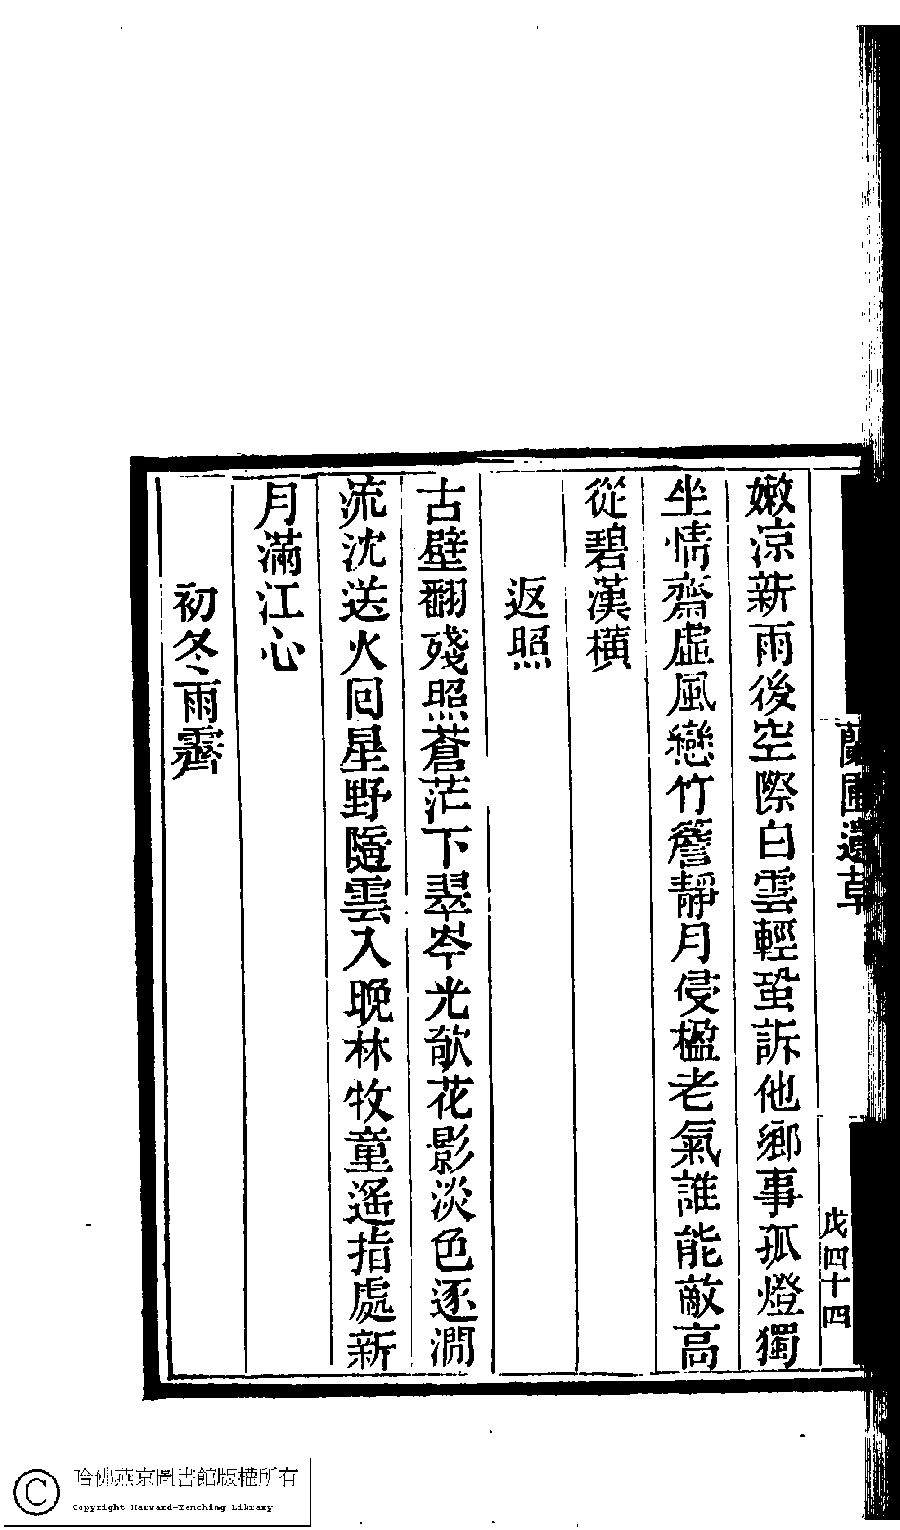 嫩涼新雨後空際白雲輕蛩訴他鄉事孤燈獨
坐情齋虛風戀竹簷靜月侵楹老氣誰能敵高
從碧漢橫
返照
古壁翻殘照蒼茫下翠岑光欹花影淡色逐澗
流沈送火回星野隨雲入晚林牧童遙指處新
月滿江心
初冬雨霽
蘭圃遺草
戊四十四
哈佛燕京圖書館版權所有
Copyright Harvard-Yenching Library